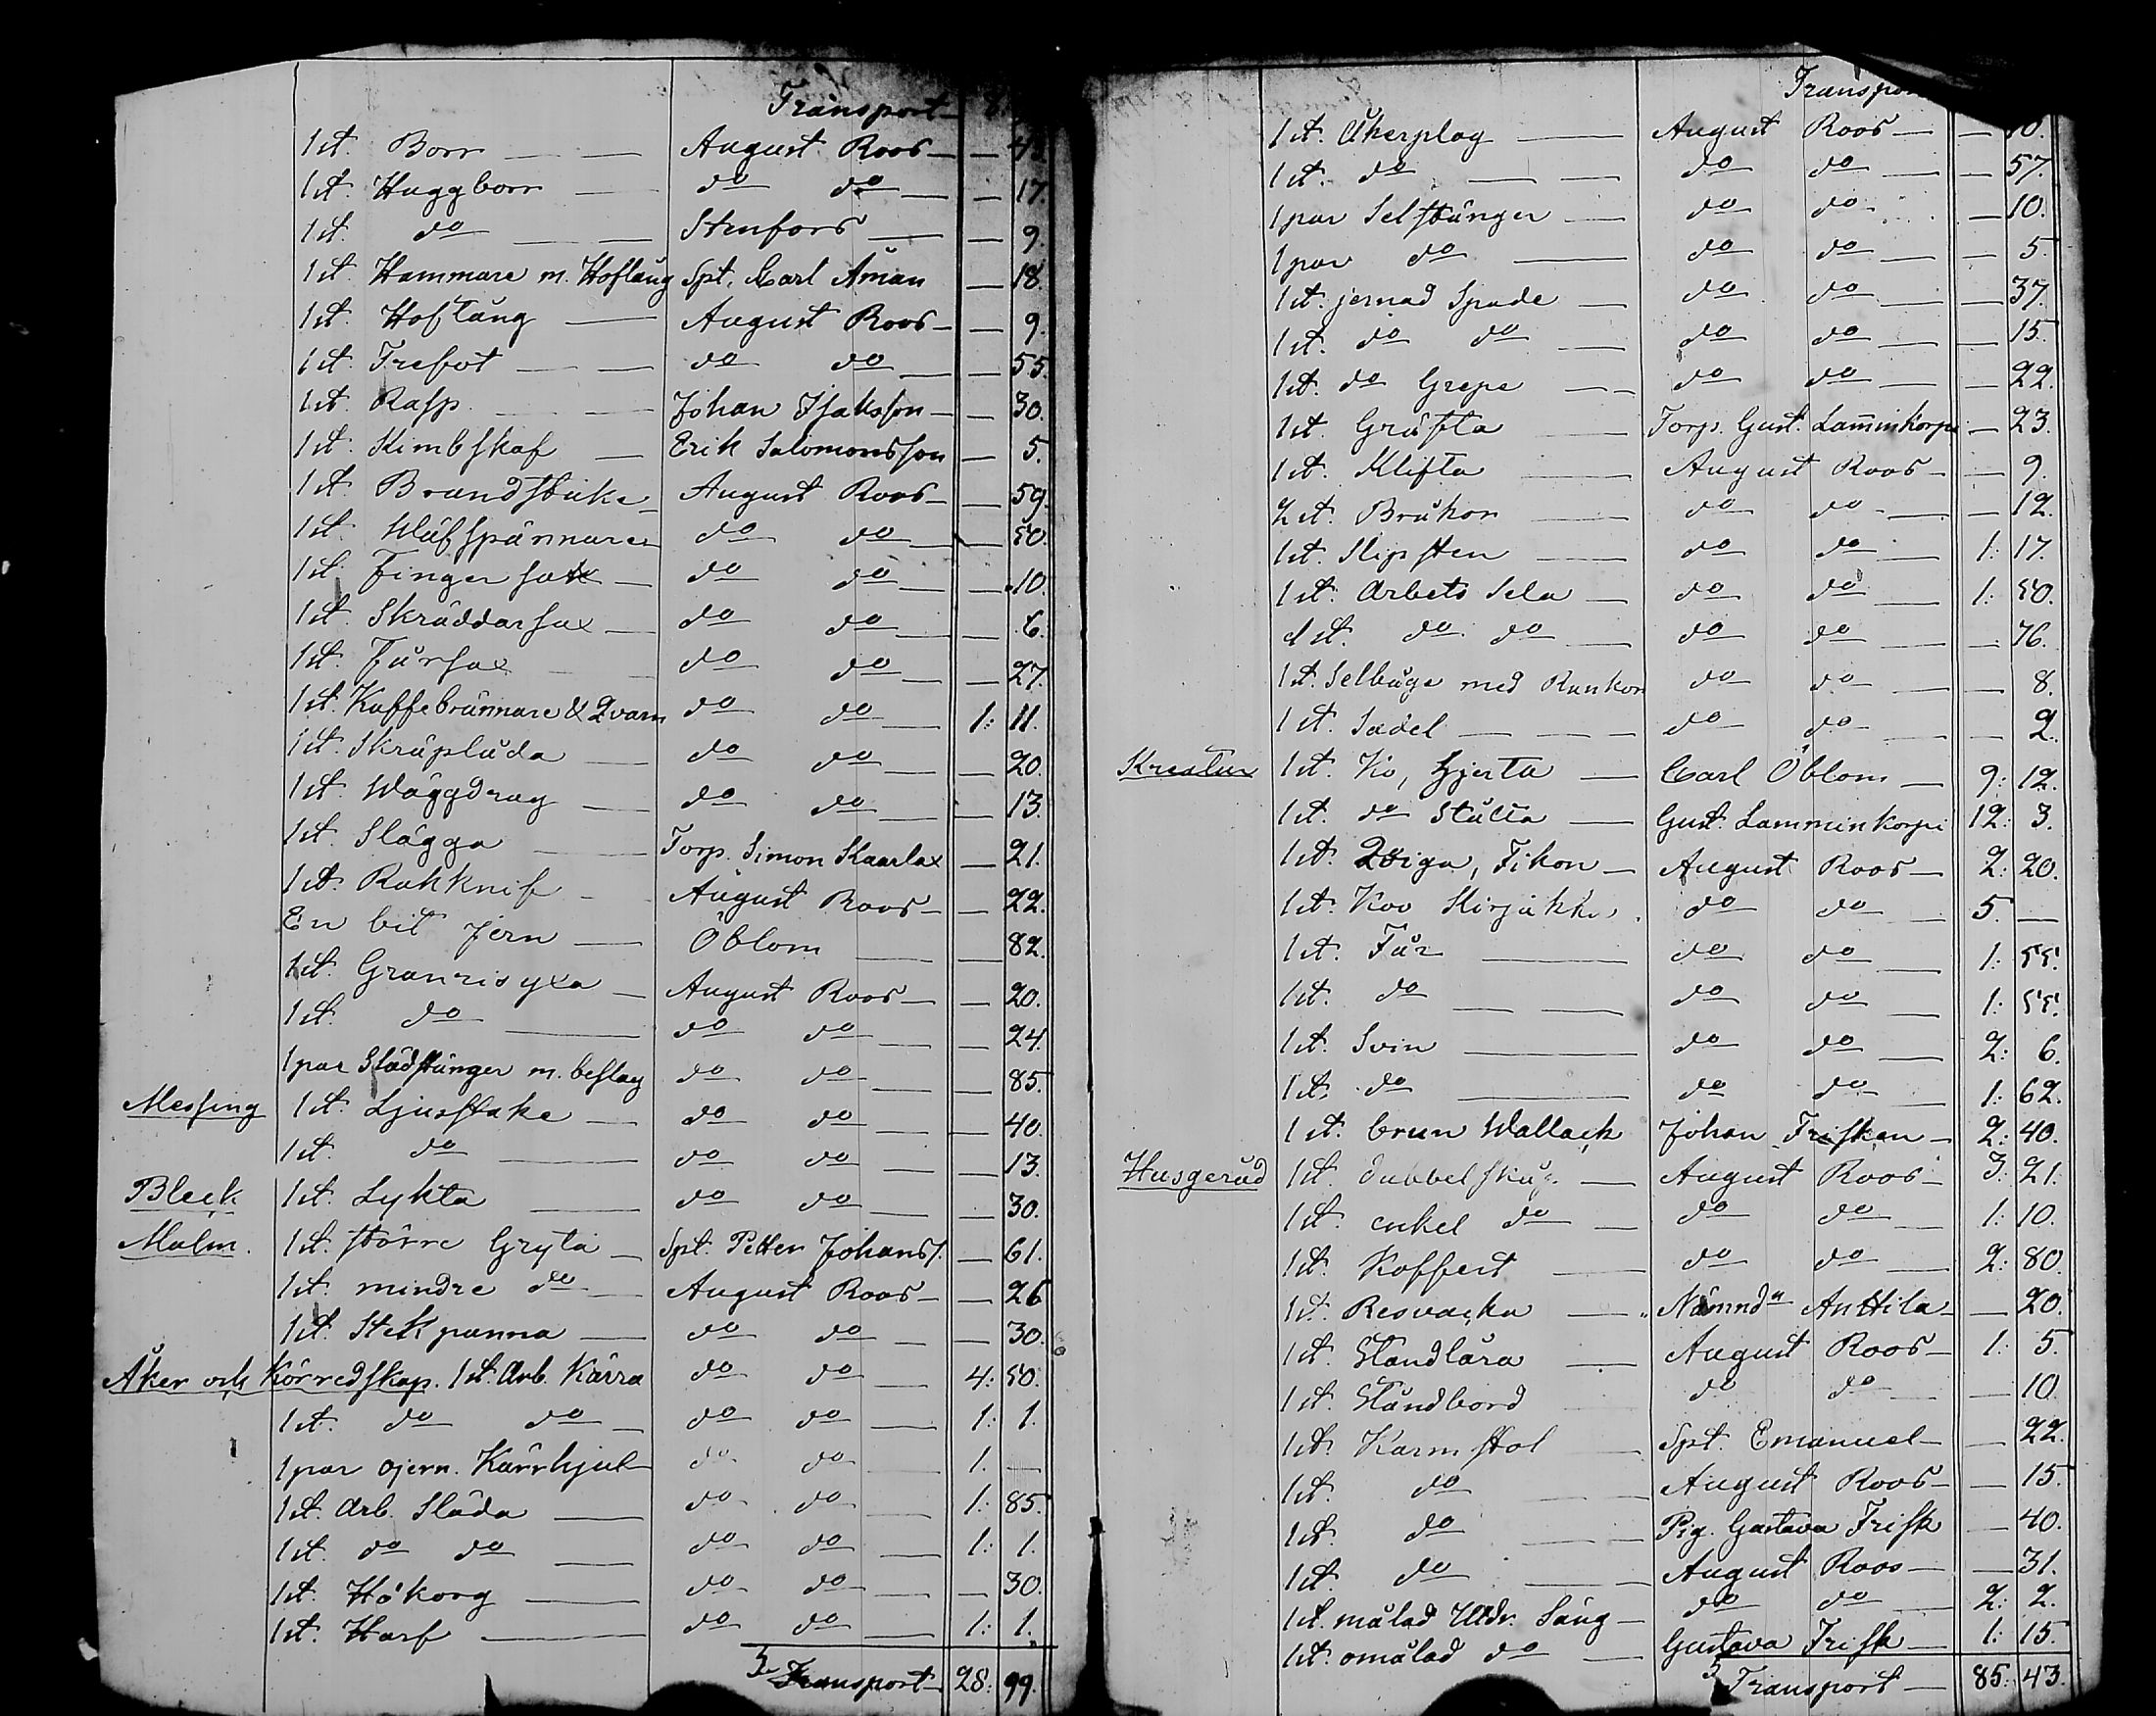 Transport
1 st. Borr — — August Roos — —
1 st. Huggborr — do do — — 17.
1 st. do — — Stenfors — — 9.
1 st. Hammare m. Hoftång Spt. Carl Åman — 18
1 st. Hoftång — August Roos — — 9.
1 st. Trefot — — do do — — 55.
1 st. Rasp. — — Johan Isaksson — — 30.
1 st. Kimbskaf — Erik Salomonsson — 5.
1 st. Brandstake — August Roos — — 59.
1 st. Wäfspännare — do do — — 50.
1 st. Fingersax — do do — — 10.
1 st. Skräddarsax — do do — — 6.
1 st. Fårsax — do do — — 27.
1 st. Kaffebrännare & Qvarn do do — 1: 11.
1 st. Skräplåda — do do — — 20.
1 st. Wäggdrag — do do — — 13.
1 st. Slägga — Torp. Simon Skaarlax — 21.
1 st. Rakknif — August Roos — — 22.
En bit Jern — Öblom — — 82.
1 st. Granrisyxa — August Roos — — 20.
1 st. do — do do — — 24.
1 par Slädstänger m. beslag do do — — 85.
Messing 1 st. Ljusstake — do do — — 40.
1 st. do — do do — — 13.
Bleck 1 st. Lykta — do do — — 30.
Malm. 1 st. större Gryta — Spt. Petter Johanss. — 61.
1 st. mindre do — August Roos — — 26
1 st. Stekpanna — do do — — 30.
Åker och Körredskap. 1 st. Arb. Kärra do do — 4: 50.
1 st. do do — do do — 1: 1.
1 par ojern. Kärrhjul — do do — 1. —
1 st. Arb. Släda — do do — 1: 85.
1 st. do do — do do — 1: 1.
1 st. Hökorg — do do — — 30.
1 st. Harf — do do — 1: 1.
Transport — 28: 99.
1 st. Åkerplog — August Roos — —
1 st. do — — do do — — 57.
1 par Selstänger — do do — 10.
1 par do — do do — — 5.
1 st. jernad Spade — do do — — 37.
1 st. do do — do do — — 15.
1 st. do Grepe — — do do — — 22.
1 st. Gräfta — Torp. Gust. Lam̄inkorpi — 23.
1 st. Klifta — August Roos — — 9.
2 st. Bråkor — do do — — 12.
1 st. Slipsten — do do — 1: 17.
1 st. Arbets Sela — do do — 1: 50.
1 st. do do — do do — — 76.
1 st. Selbåge med Rankor do do — — 8.
1 st. Sadel — — — do do — — 2.
Kreatur 1 st. Ko, Hjerta — Carl Öblom — 9: 12.
1 st. do Ståtta — Gust. Lamminkorpi 12: 3.
1 st. Qviga, Fikon — August Roos — 2: 20.
1 st. Koo Kirjakko. do do — 5. —
1 st. Får — do do — 1: 55.
1 st. do — — do do — 1: 55.
1 st. Svin — do do — 2: 6.
1 st. do — do do — 1: 62.
1 st. brun Wallack Johan Frisken — 2: 40.
Husgeråd 1 st. dubbel skåp. — August Roos — 3: 21.
1 st. enkel do — do do — 1: 10.
1 st. Koffert — do do — 2: 80.
1 st. Resvacka — Nämndn Anttila — — 20.
1 st. Ståndlåra — August Roos — 1: 5.
1 st. Ståndbord do do — — 10.
1 st. Karmstol — Spt. Emanuel — — 22.
1 st. do — — August Roos — — 15.
1 st. do — — Pig. Gustava Frisk — 40.
1 st. do — — August Roos — — 31.
1 st. målad Utdr. Säng — do do — 2: 2.
1 st. omålad do — Gustava Frisk — 1: 15.
Transport — 85: 43.